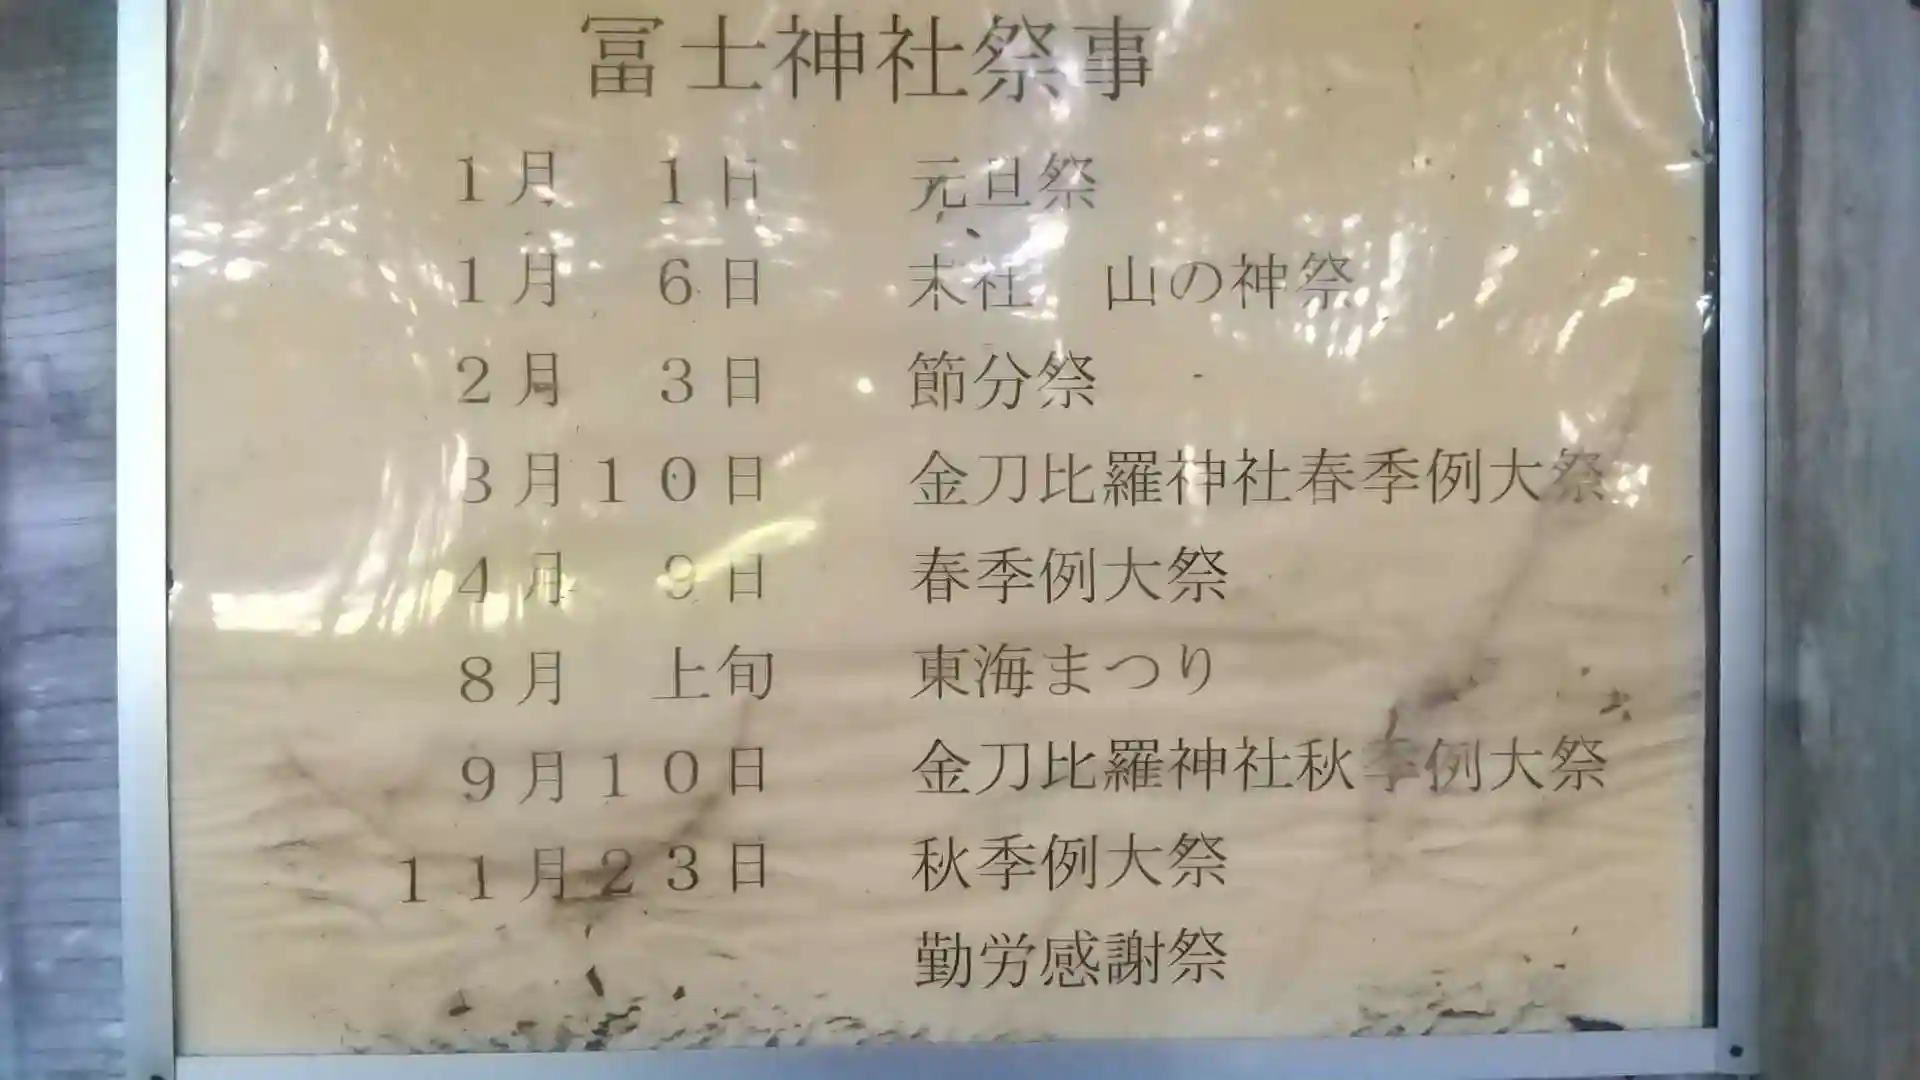 冨士神社祭事
1月 1日 元旦祭
1月 6日 末社 山の神祭
2月 3日 節分祭
3月10日 金刀比羅神社春季例大祭
4月 9日 春季例大祭
8月 上旬 東海まつり
9月10日 金刀比羅神社秋季例大祭
11月23日 秋季例大祭
勤労感謝祭